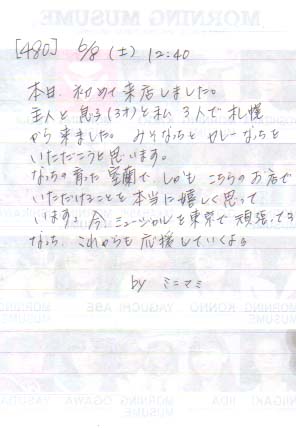 [480] 6/8 (土) 12:40
本日、初めて来店しました。
主人と息子(3才)と私 3人で札幌
から来ました。 みそなっちとカレーなっちを
いただこうと思います。
なっちの育った室蘭で、しかもこちらのお店で
いただけることを本当に嬉しく思って
います。今 ミュージカルを東京で頑張ってる
なっち、これからも応援していくよ。
by ミニマミ